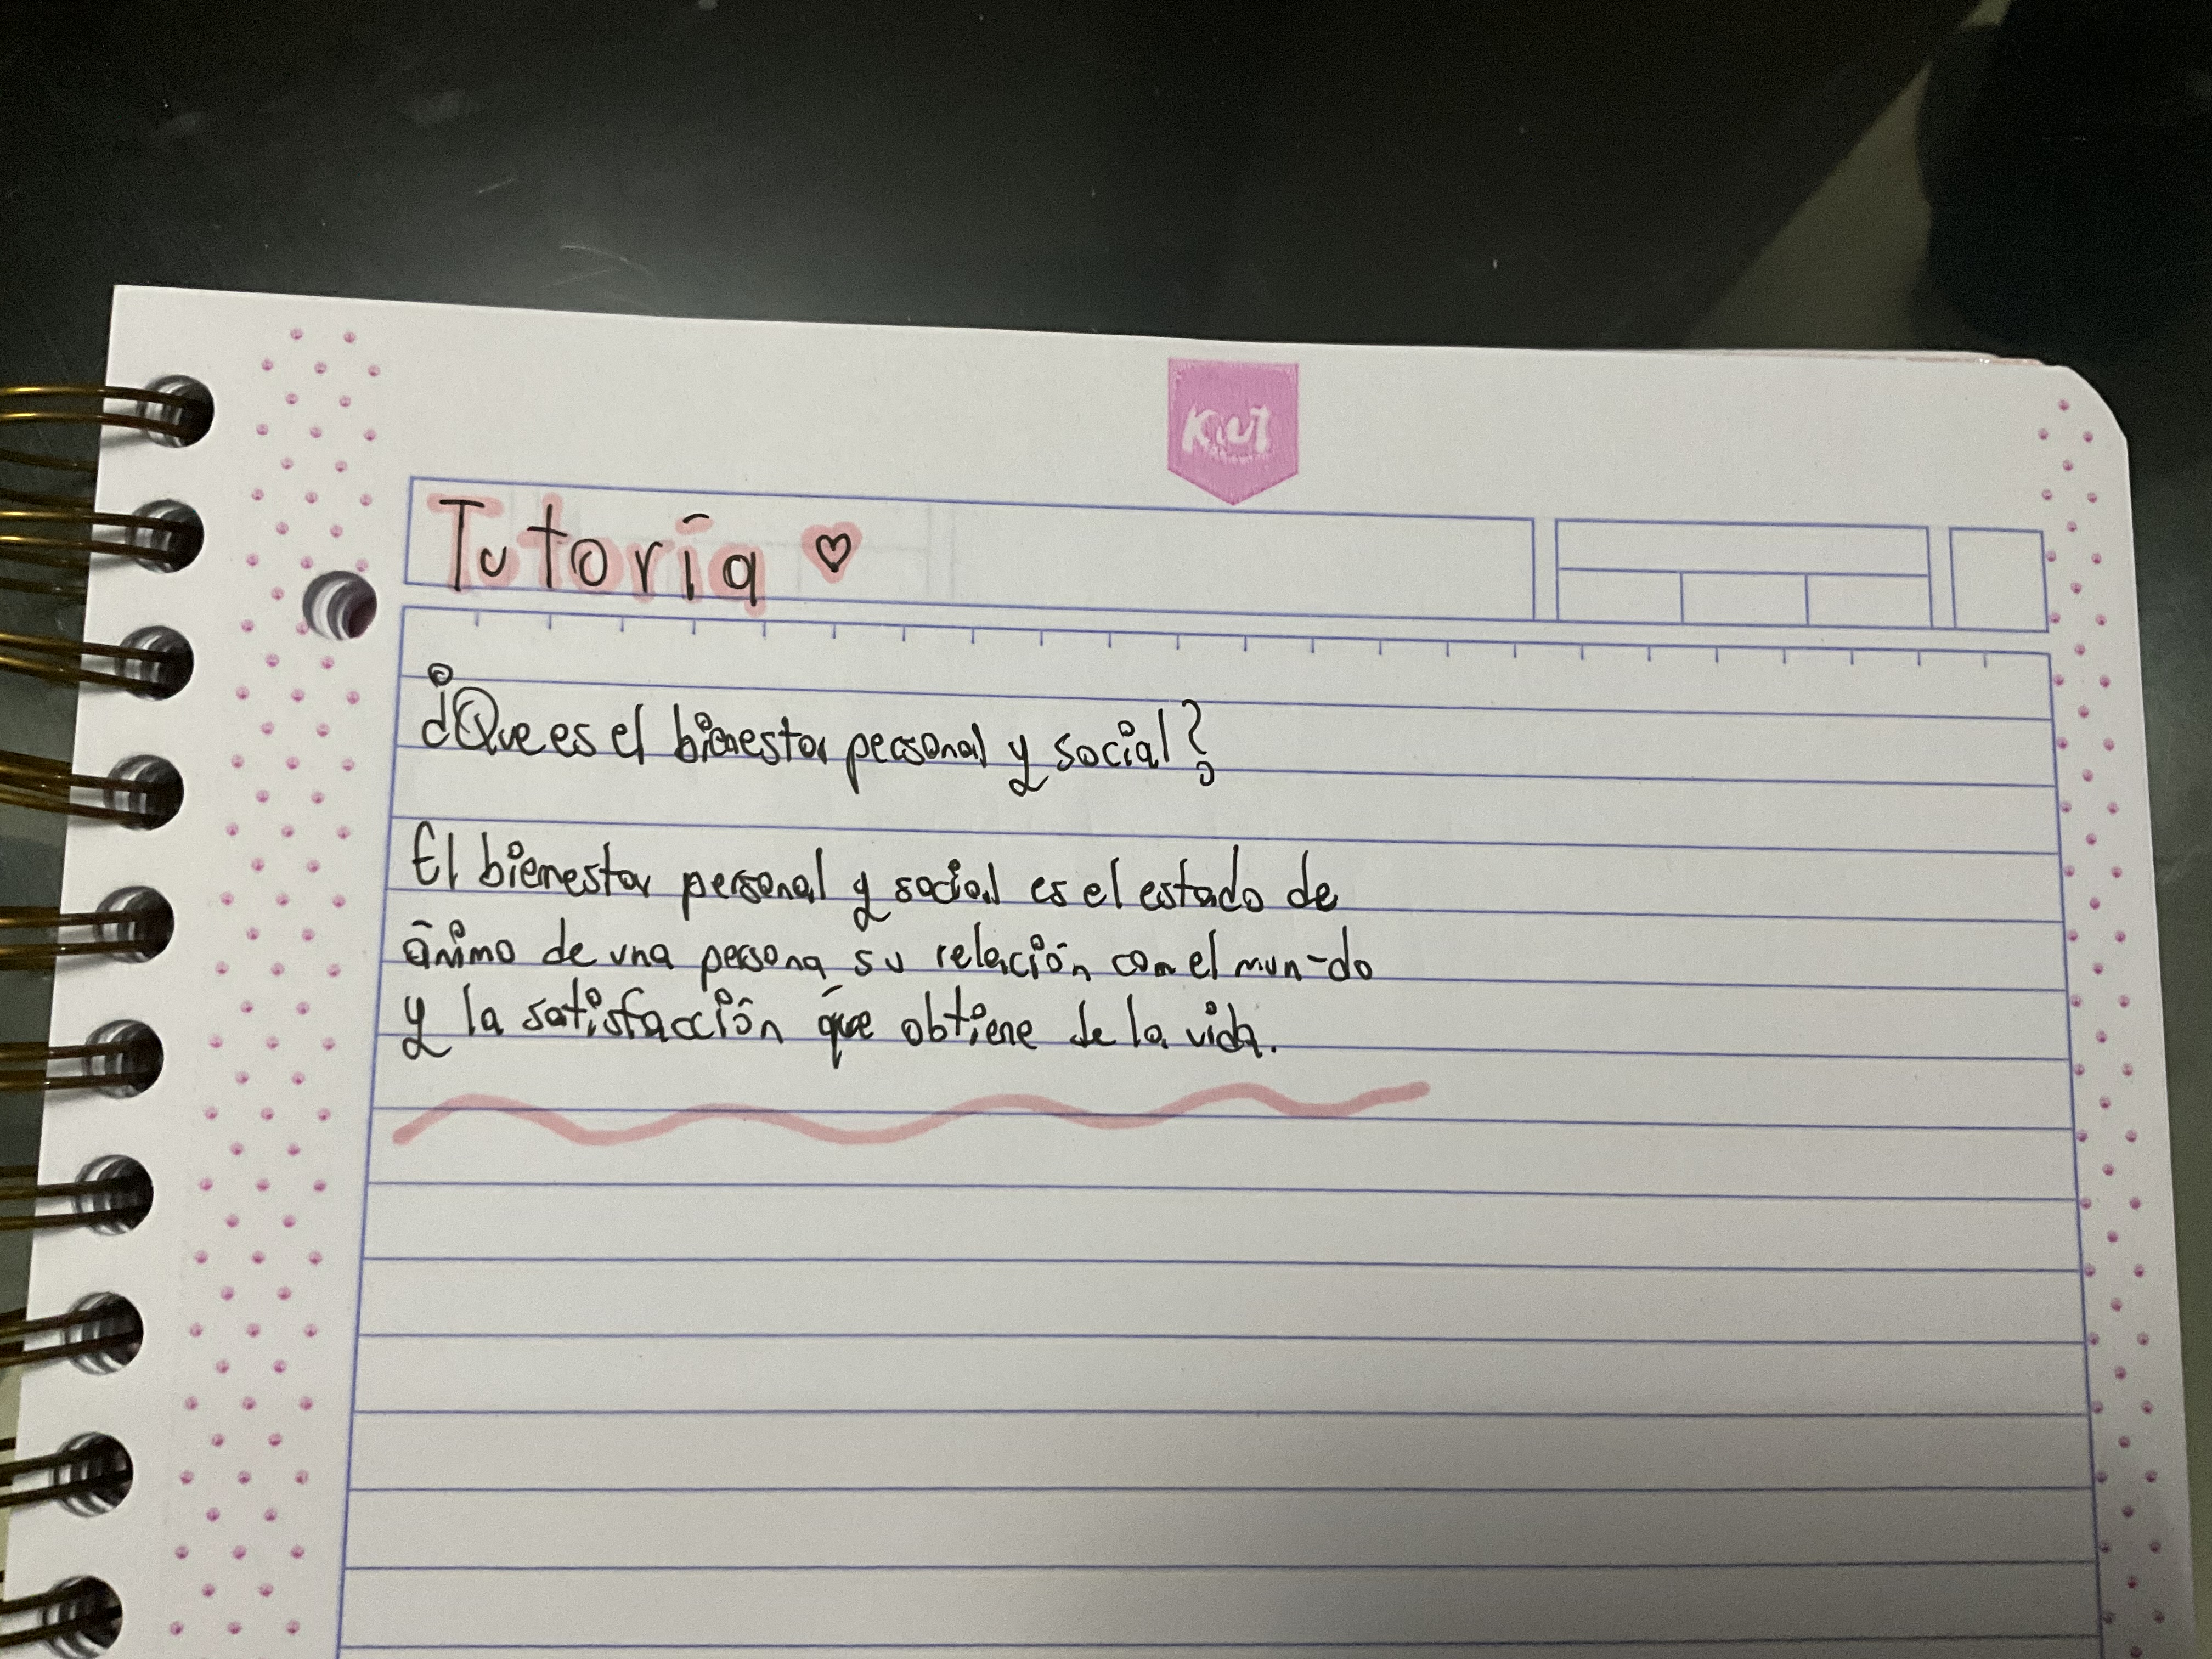 Kiut
Tutoría ♡
¿Que es el bienestar personal y social?
El bienestar personal y social es el estado de
ánimo de una persona su relación con el mun-do
y la satisfacción que obtiene de la vida.